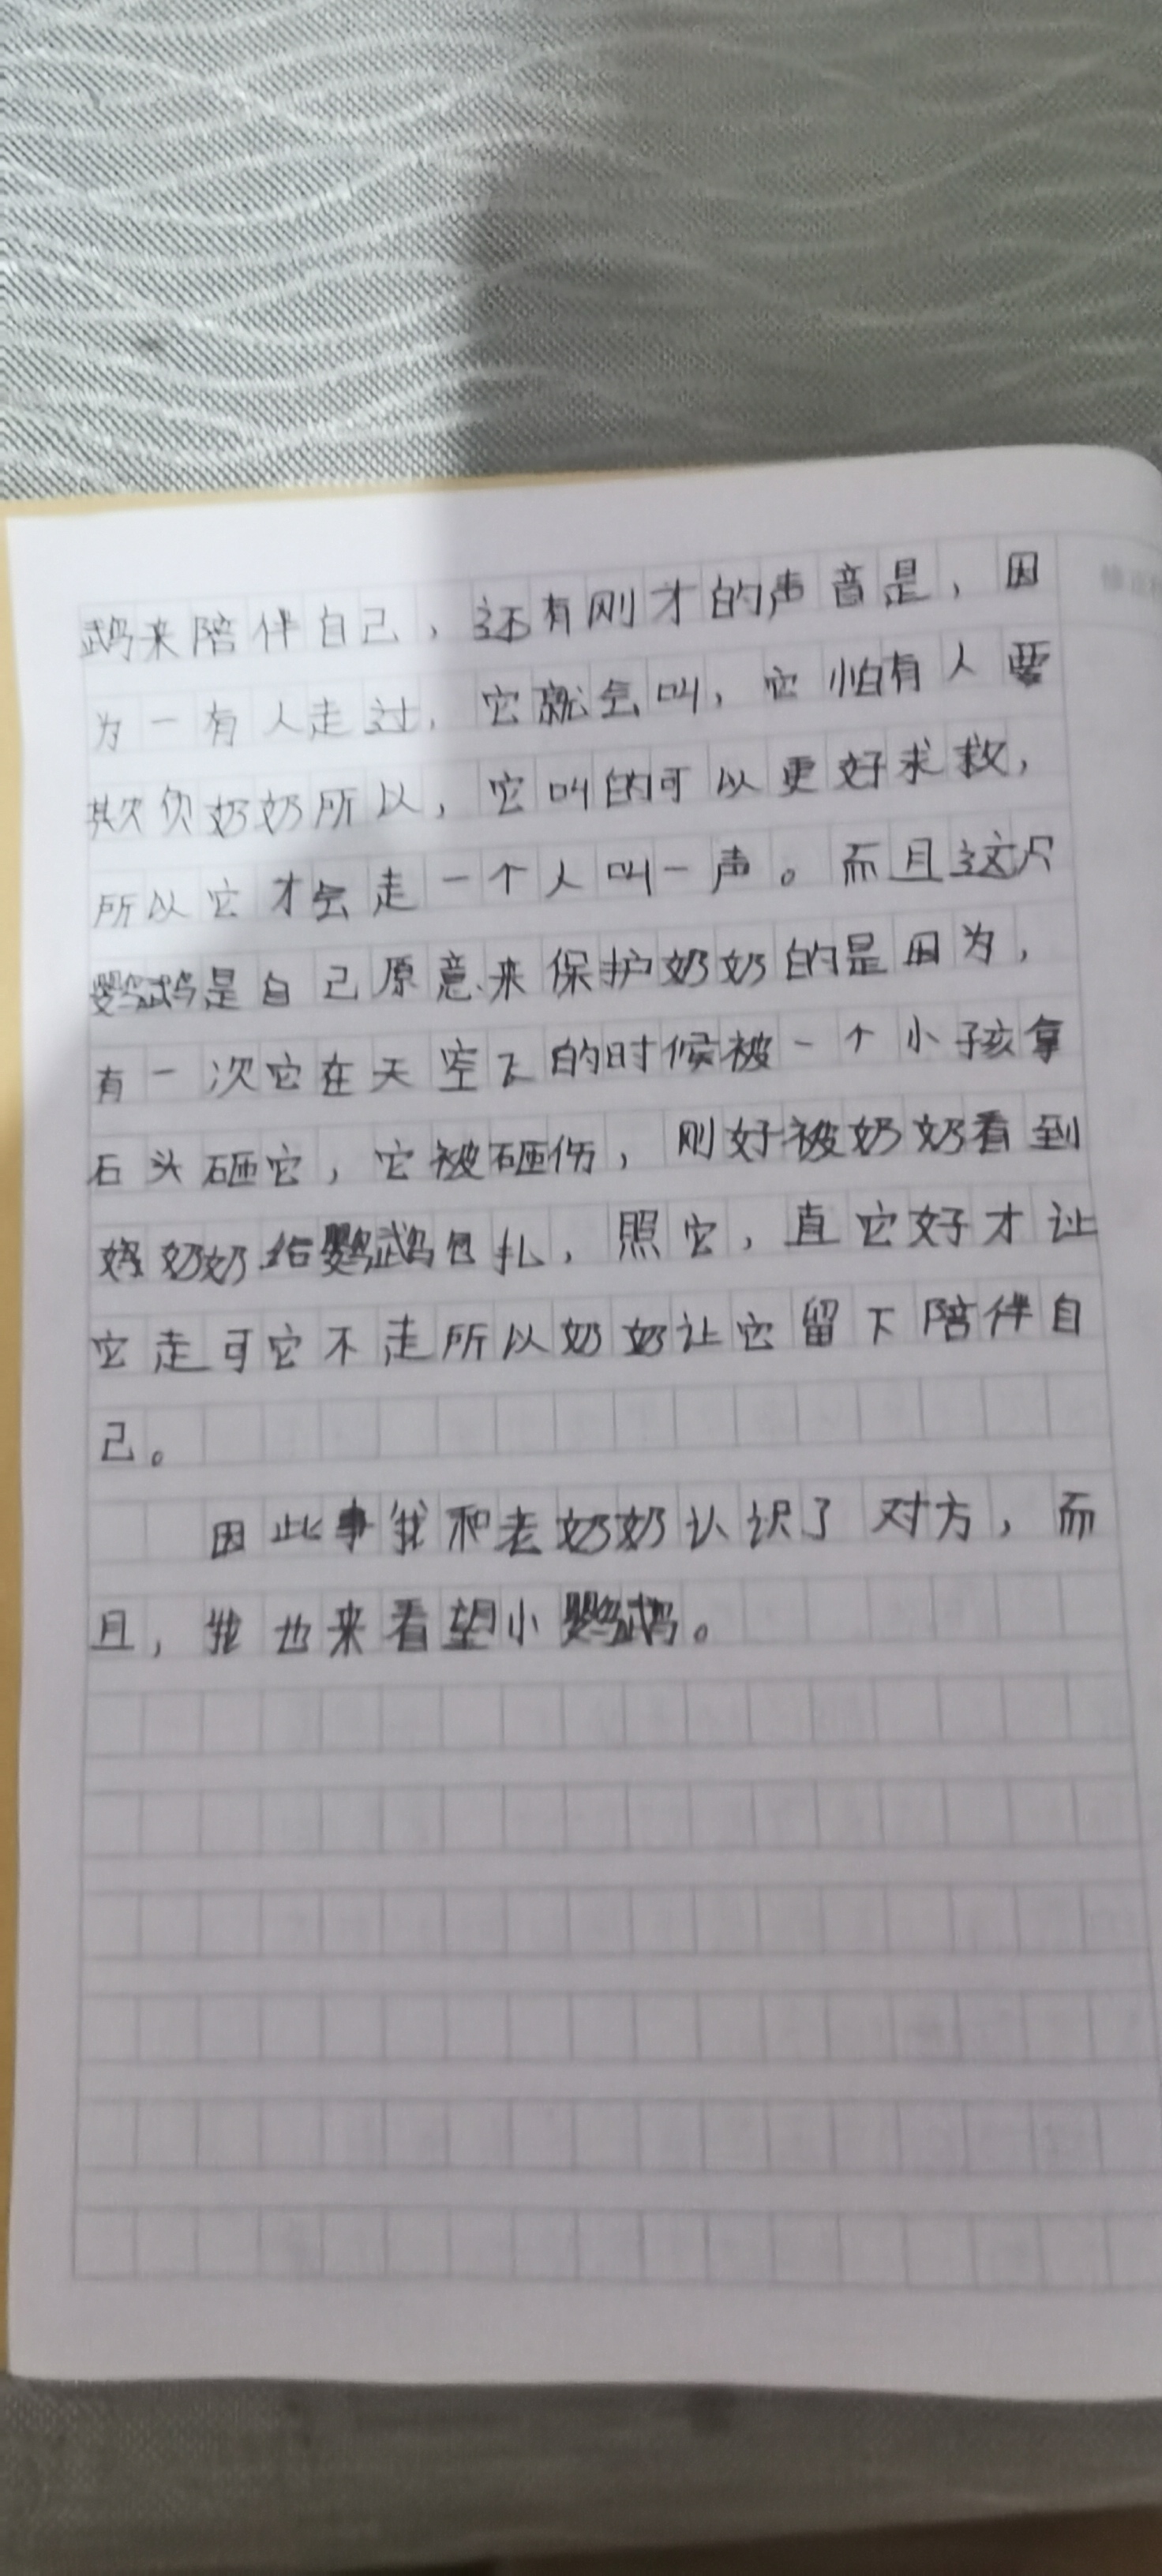 鹉来陪伴自己，还有刚才的声音是，因
为一有人走过，它就会叫，它怕有人要
欺负奶奶所以，它叫的可以更好求救，
所以它才会走一个人叫一声。而且这只
鹦鹉是自己原意来保护奶奶的是因为，
有一次它在天空飞的时候被一个小孩拿
石头砸它，它被砸伤，刚好被奶奶看到
奶奶给鹦鹉包扎，照它，直它好才让
它走可它不走所以奶奶让它留下陪伴自
己。
因此事我和老奶奶认识了对方，而
且，我也来看望小鹦鹉。